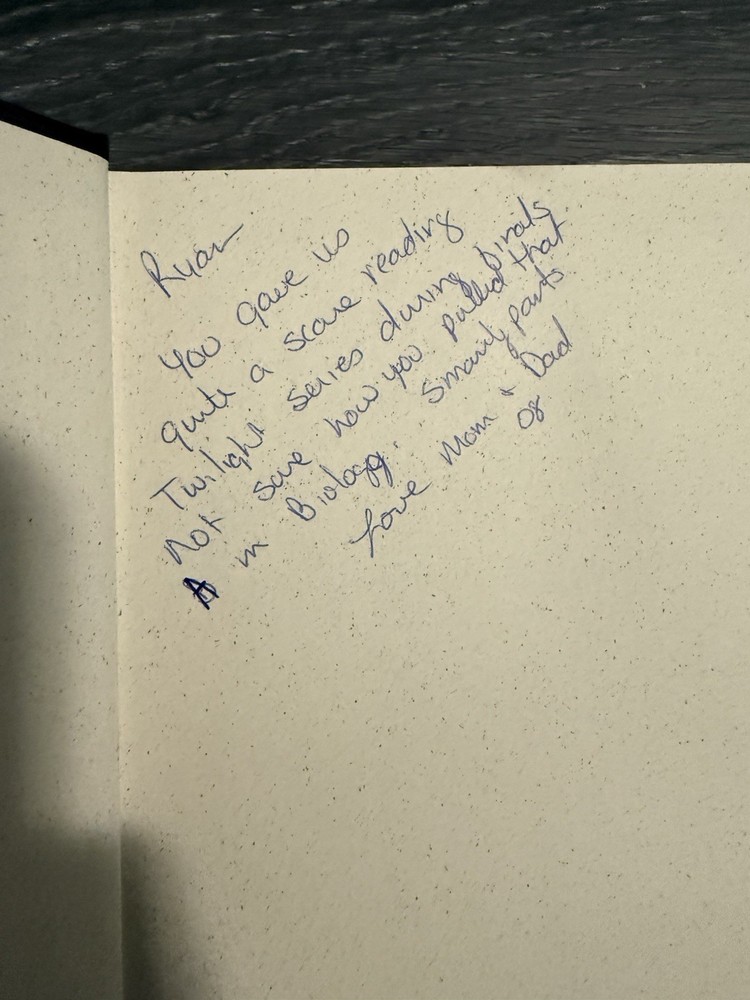 Ryan
You gave us
quite a scare reading
Twilight series during finals
Not sure how you pulled that
A in Biology. Smarty pants
Love Mom & Dad
08